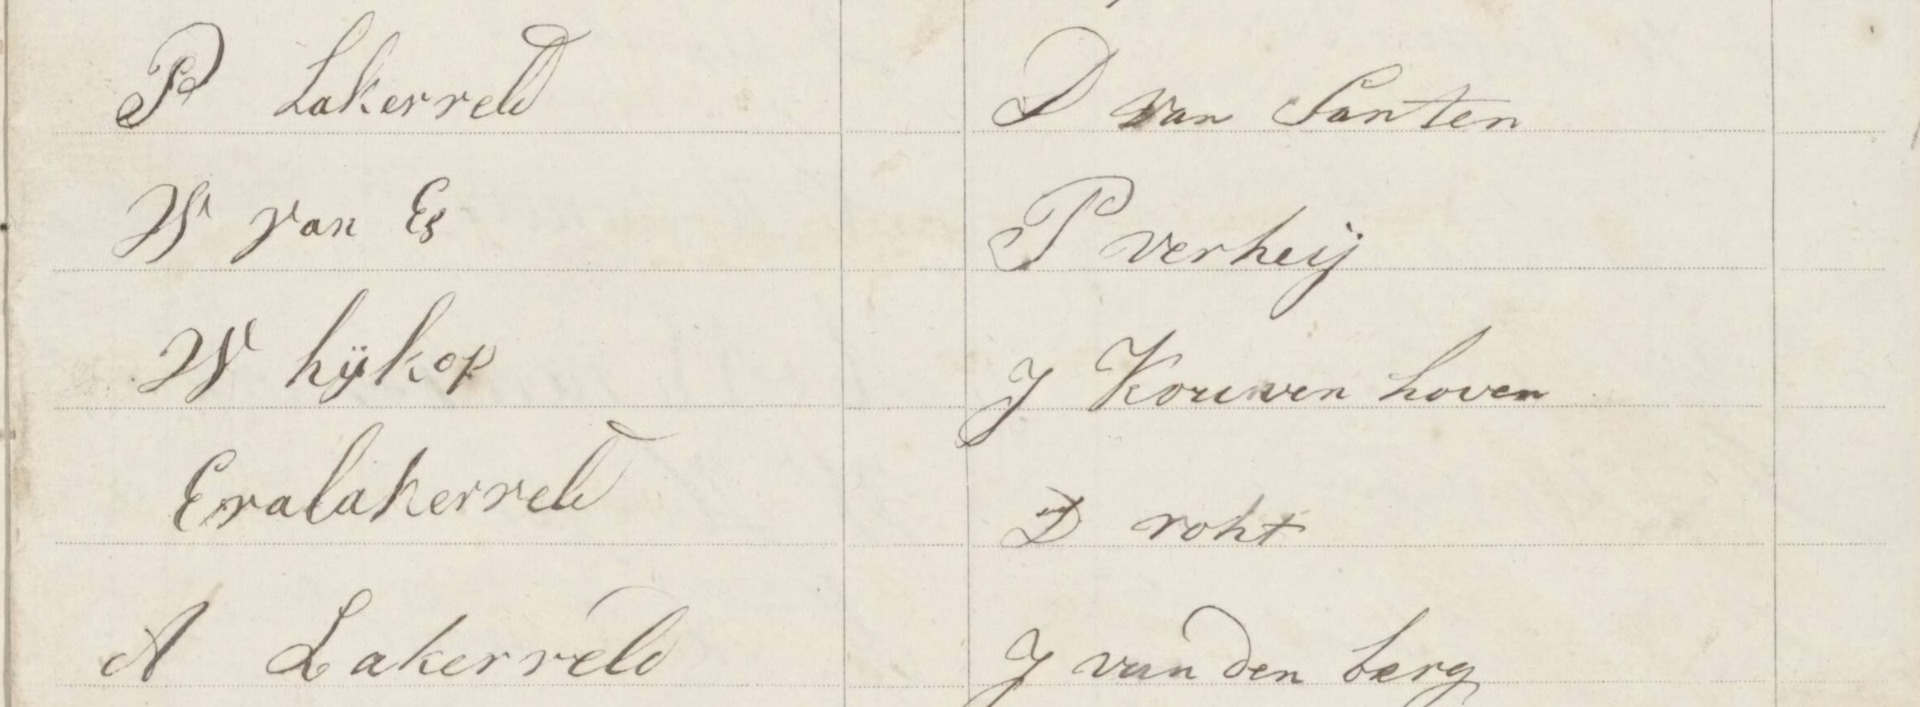 P Lakerveld
W van Es
W hijkop
Evalakerveld
A Lakerveld
D van Santen
P verheij
J Kouwen hoven
D roht
J van den berg